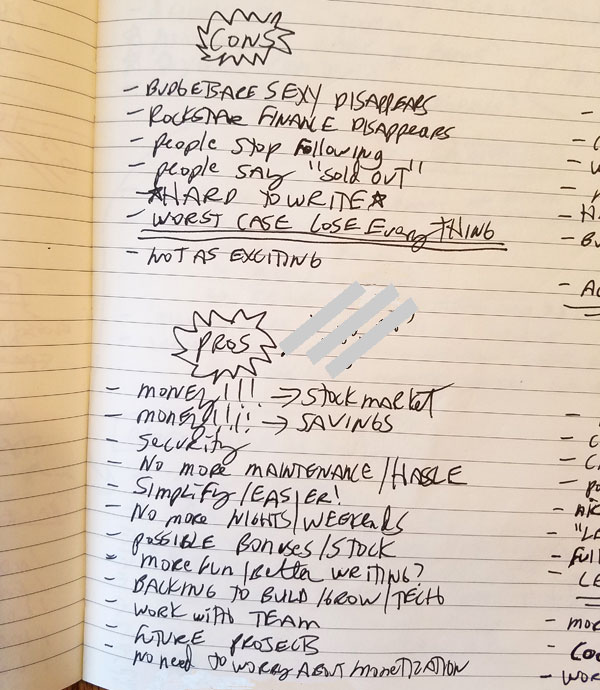 CONS
- BUDGETSARE SEXY DISAPPEARS
- ROCKSTAR FINANCE DISAPPEARS
- people stop following
- people say "sold out"
- ★HARD TO WRITE★
- WORST CASE LOSE EveryTHING
- NOT AS EXCITING
PROS
- money!!! → Stock market
- money!!!! → SAVINGS
- Security
- No more MAINTENANCE/HASSLE
- Simplify/EASIER!
- No more NIGHTS/WEEKENDS
- possible Bonuses/STOCK
- more fun/Better writing?
- BACKING TO BUILD/GROW/TECH
- WORK with TEAM
- FUTURE PROJECTS
- no need to worry About monetization